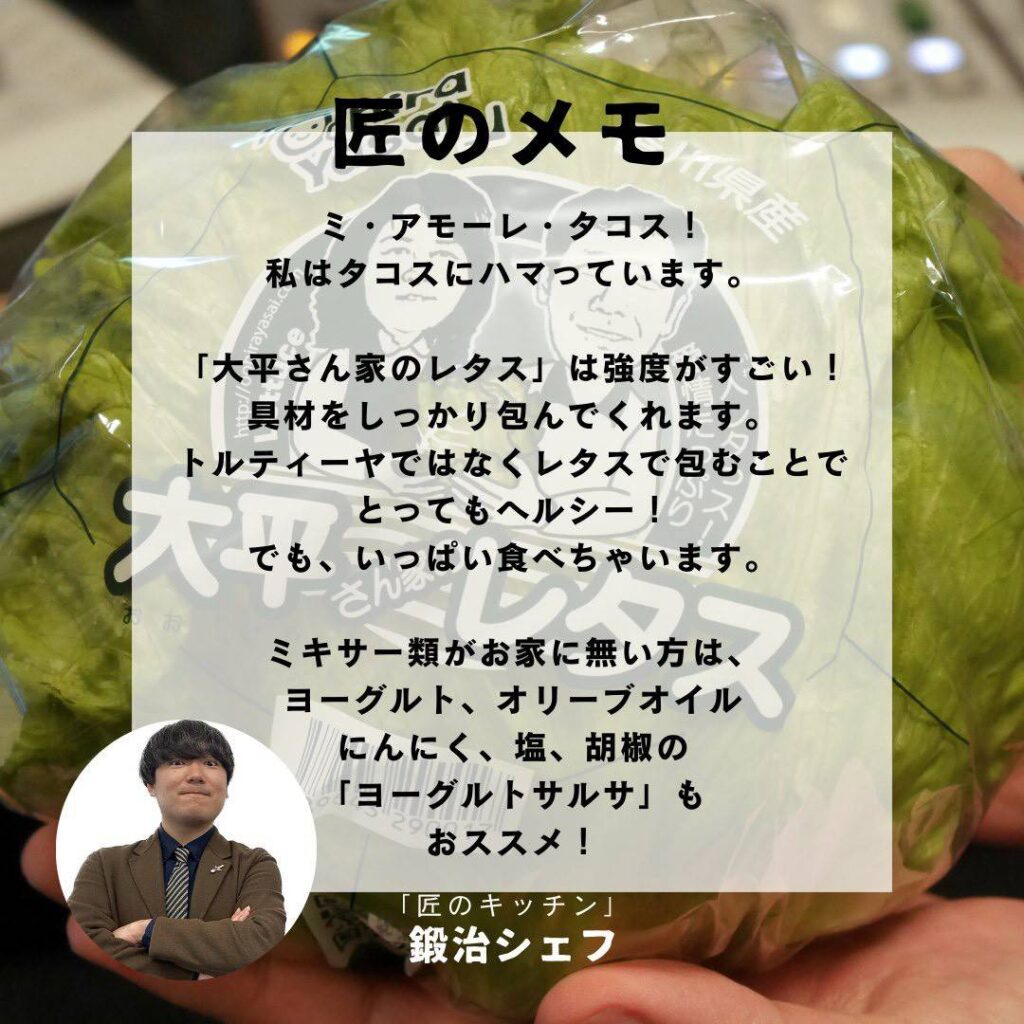 匠のメモ
ミ・アモーレ・タコス！
私はタコスにハマっています。
「大平さん家のレタス」は強度がすごい！
具材をしっかり包んでくれます。
トルティーヤではなくレタスで包むことで
とってもヘルシー！
でも、いっぱい食べちゃいます。
ミキサー類がお家に無い方は、
ヨーグルト、オリーブオイル
にんにく、塩、胡椒の
「ヨーグルトサルサ」も
おススメ！
「匠のキッチン」
鍛治シェフ
川県産
大平さん家の
レタス